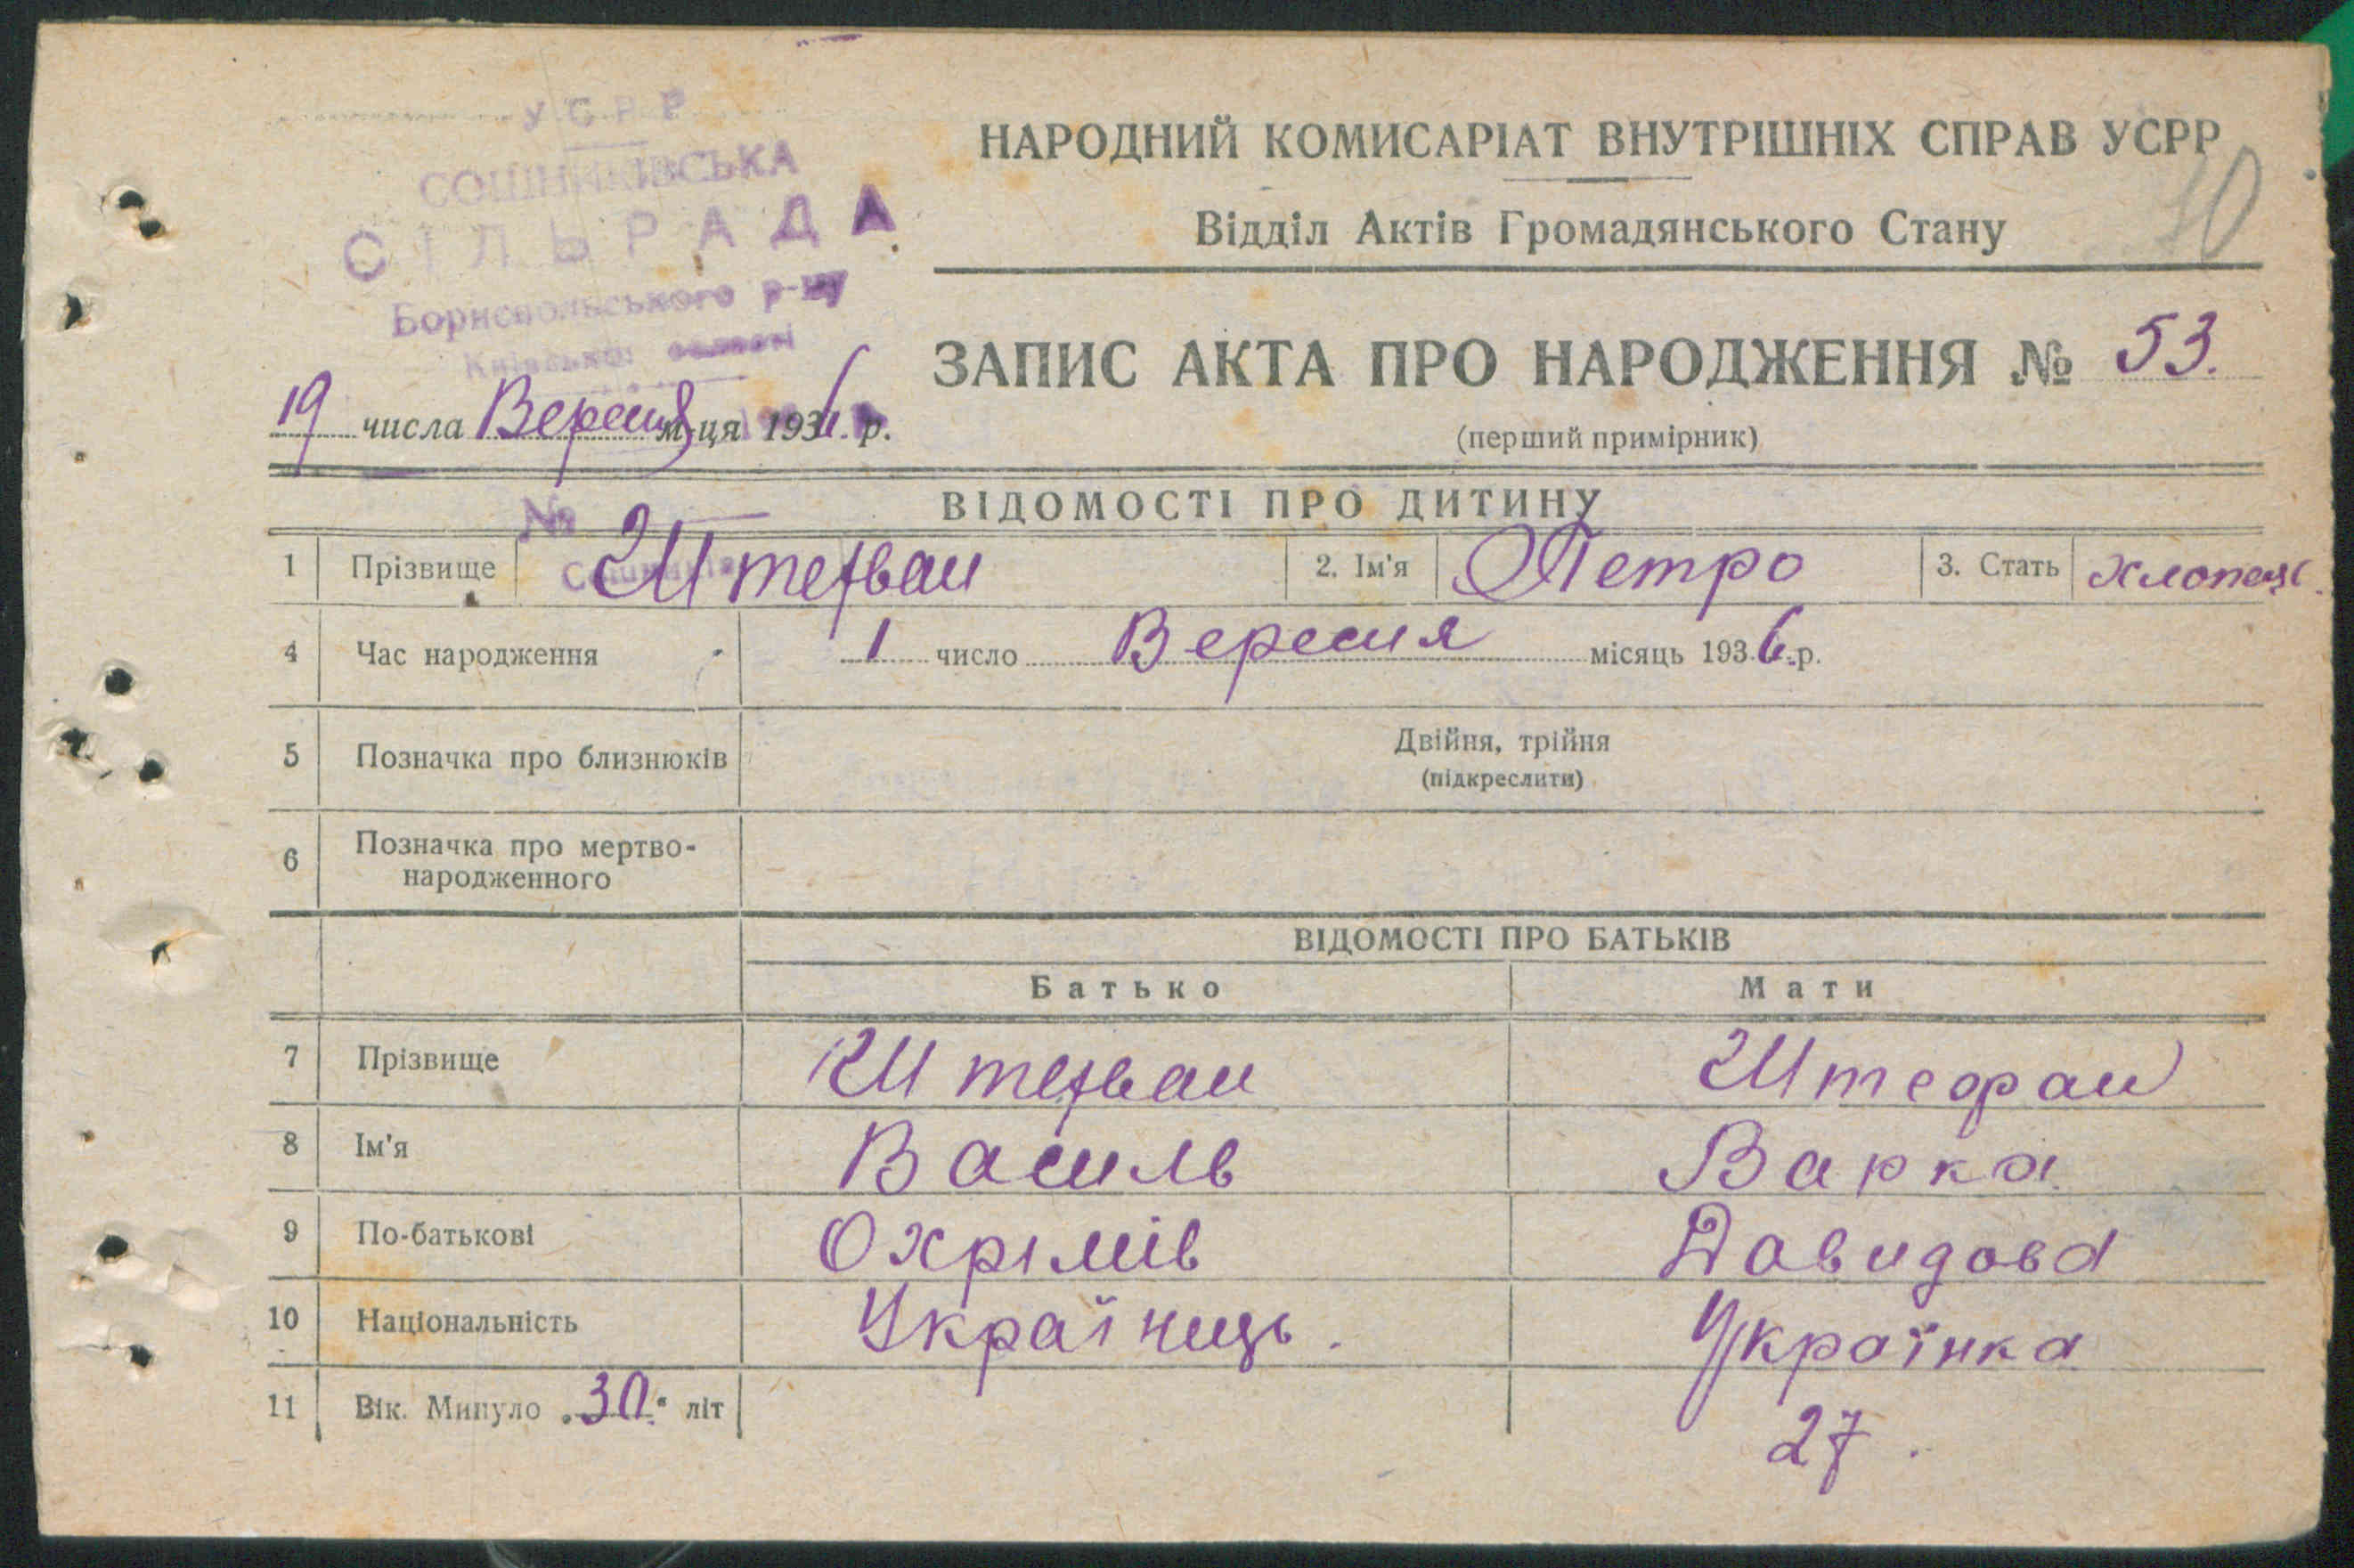 УСРР
СОШНИКІВСЬКА
СІЛЬРАДА
Бориспольського р-ну
Київської області
19 числа Вересня м-ця 1936 р.
№
НАРОДНИЙ КОМИСАРІАТ ВНУТРІШНІХ СПРАВ УСРР
10
Відділ Актів Громадянського Стану
ЗАПИС АКТА ПРО НАРОДЖЕННЯ № 53.
(перший примірник)
ВІДОМОСТІ ПРО ДИТИНУ
1 Прізвище Штефан 2. Ім'я Петро 3. Стать хлопець.
4 Час народження 1 число Вересня місяць 1936.р.
5 Позначка про близнюків Двійня, трійня
(підкреслити)
6 Позначка про мертво-
народженного
ВІДОМОСТІ ПРО БАТЬКІВ
Батько Мати
7 Прізвище Штефан Штефан
8 Ім'я Василь Варка
9 По-батькові Охрімів Давидова
10 Національність Українець. Українка
11 Вік. Минуло 30. літ 27.